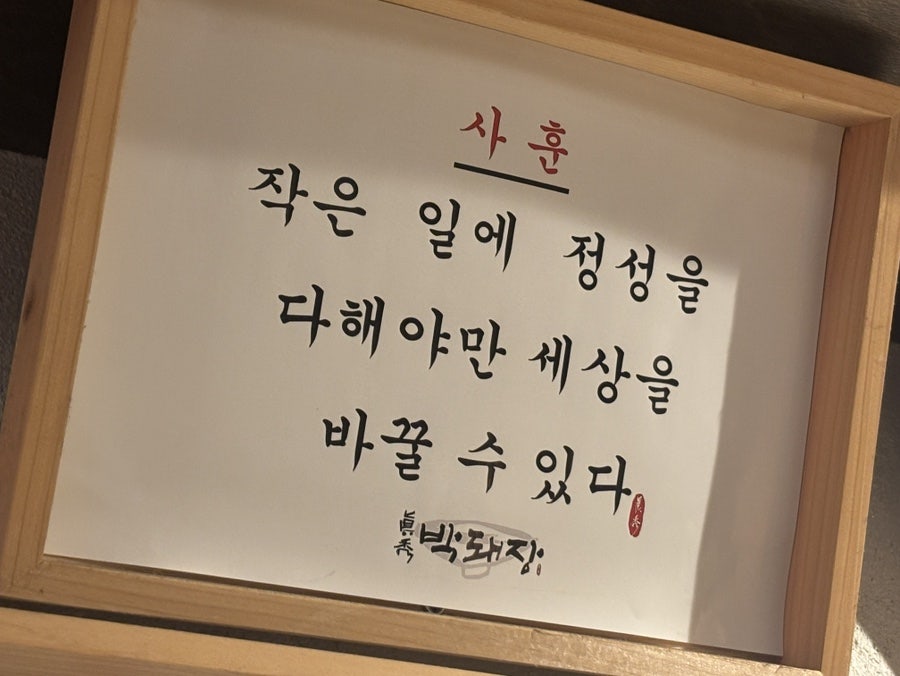 사훈
작은 일에 정성을
다해야만 세상을
바꿀 수 있다
眞秀
眞秀 박돼장